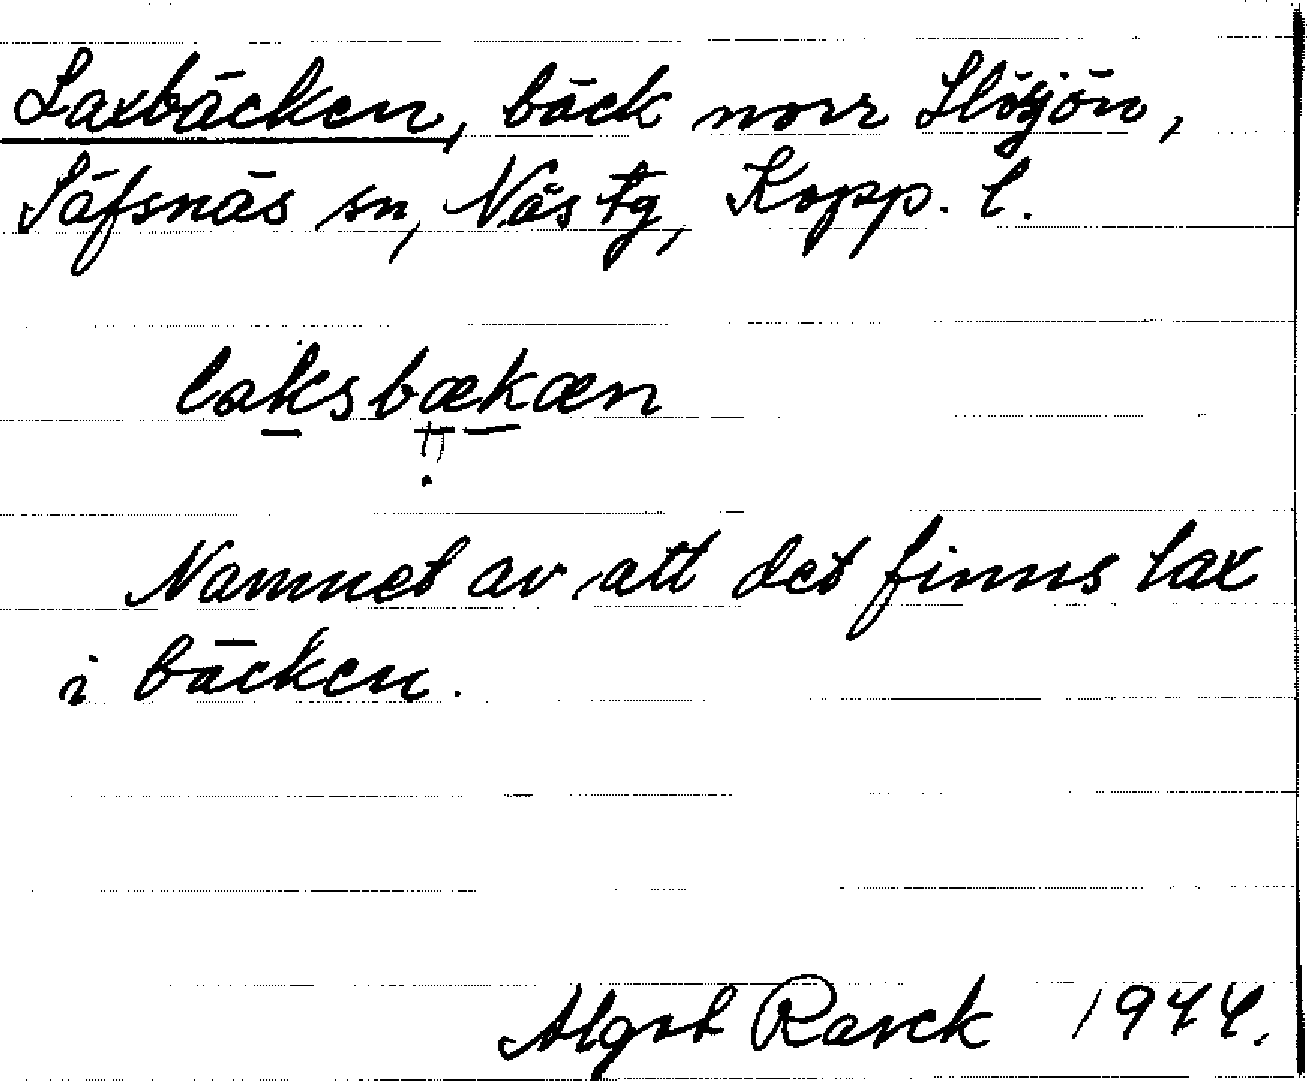 Laxbäcken, bäck norr Slösjön,
Säfsnäs sn, Nås tg, Kopp. l.
laksbækæn
Namnet av att det finns lax
i bäcken.
Algot Rarck 1944.